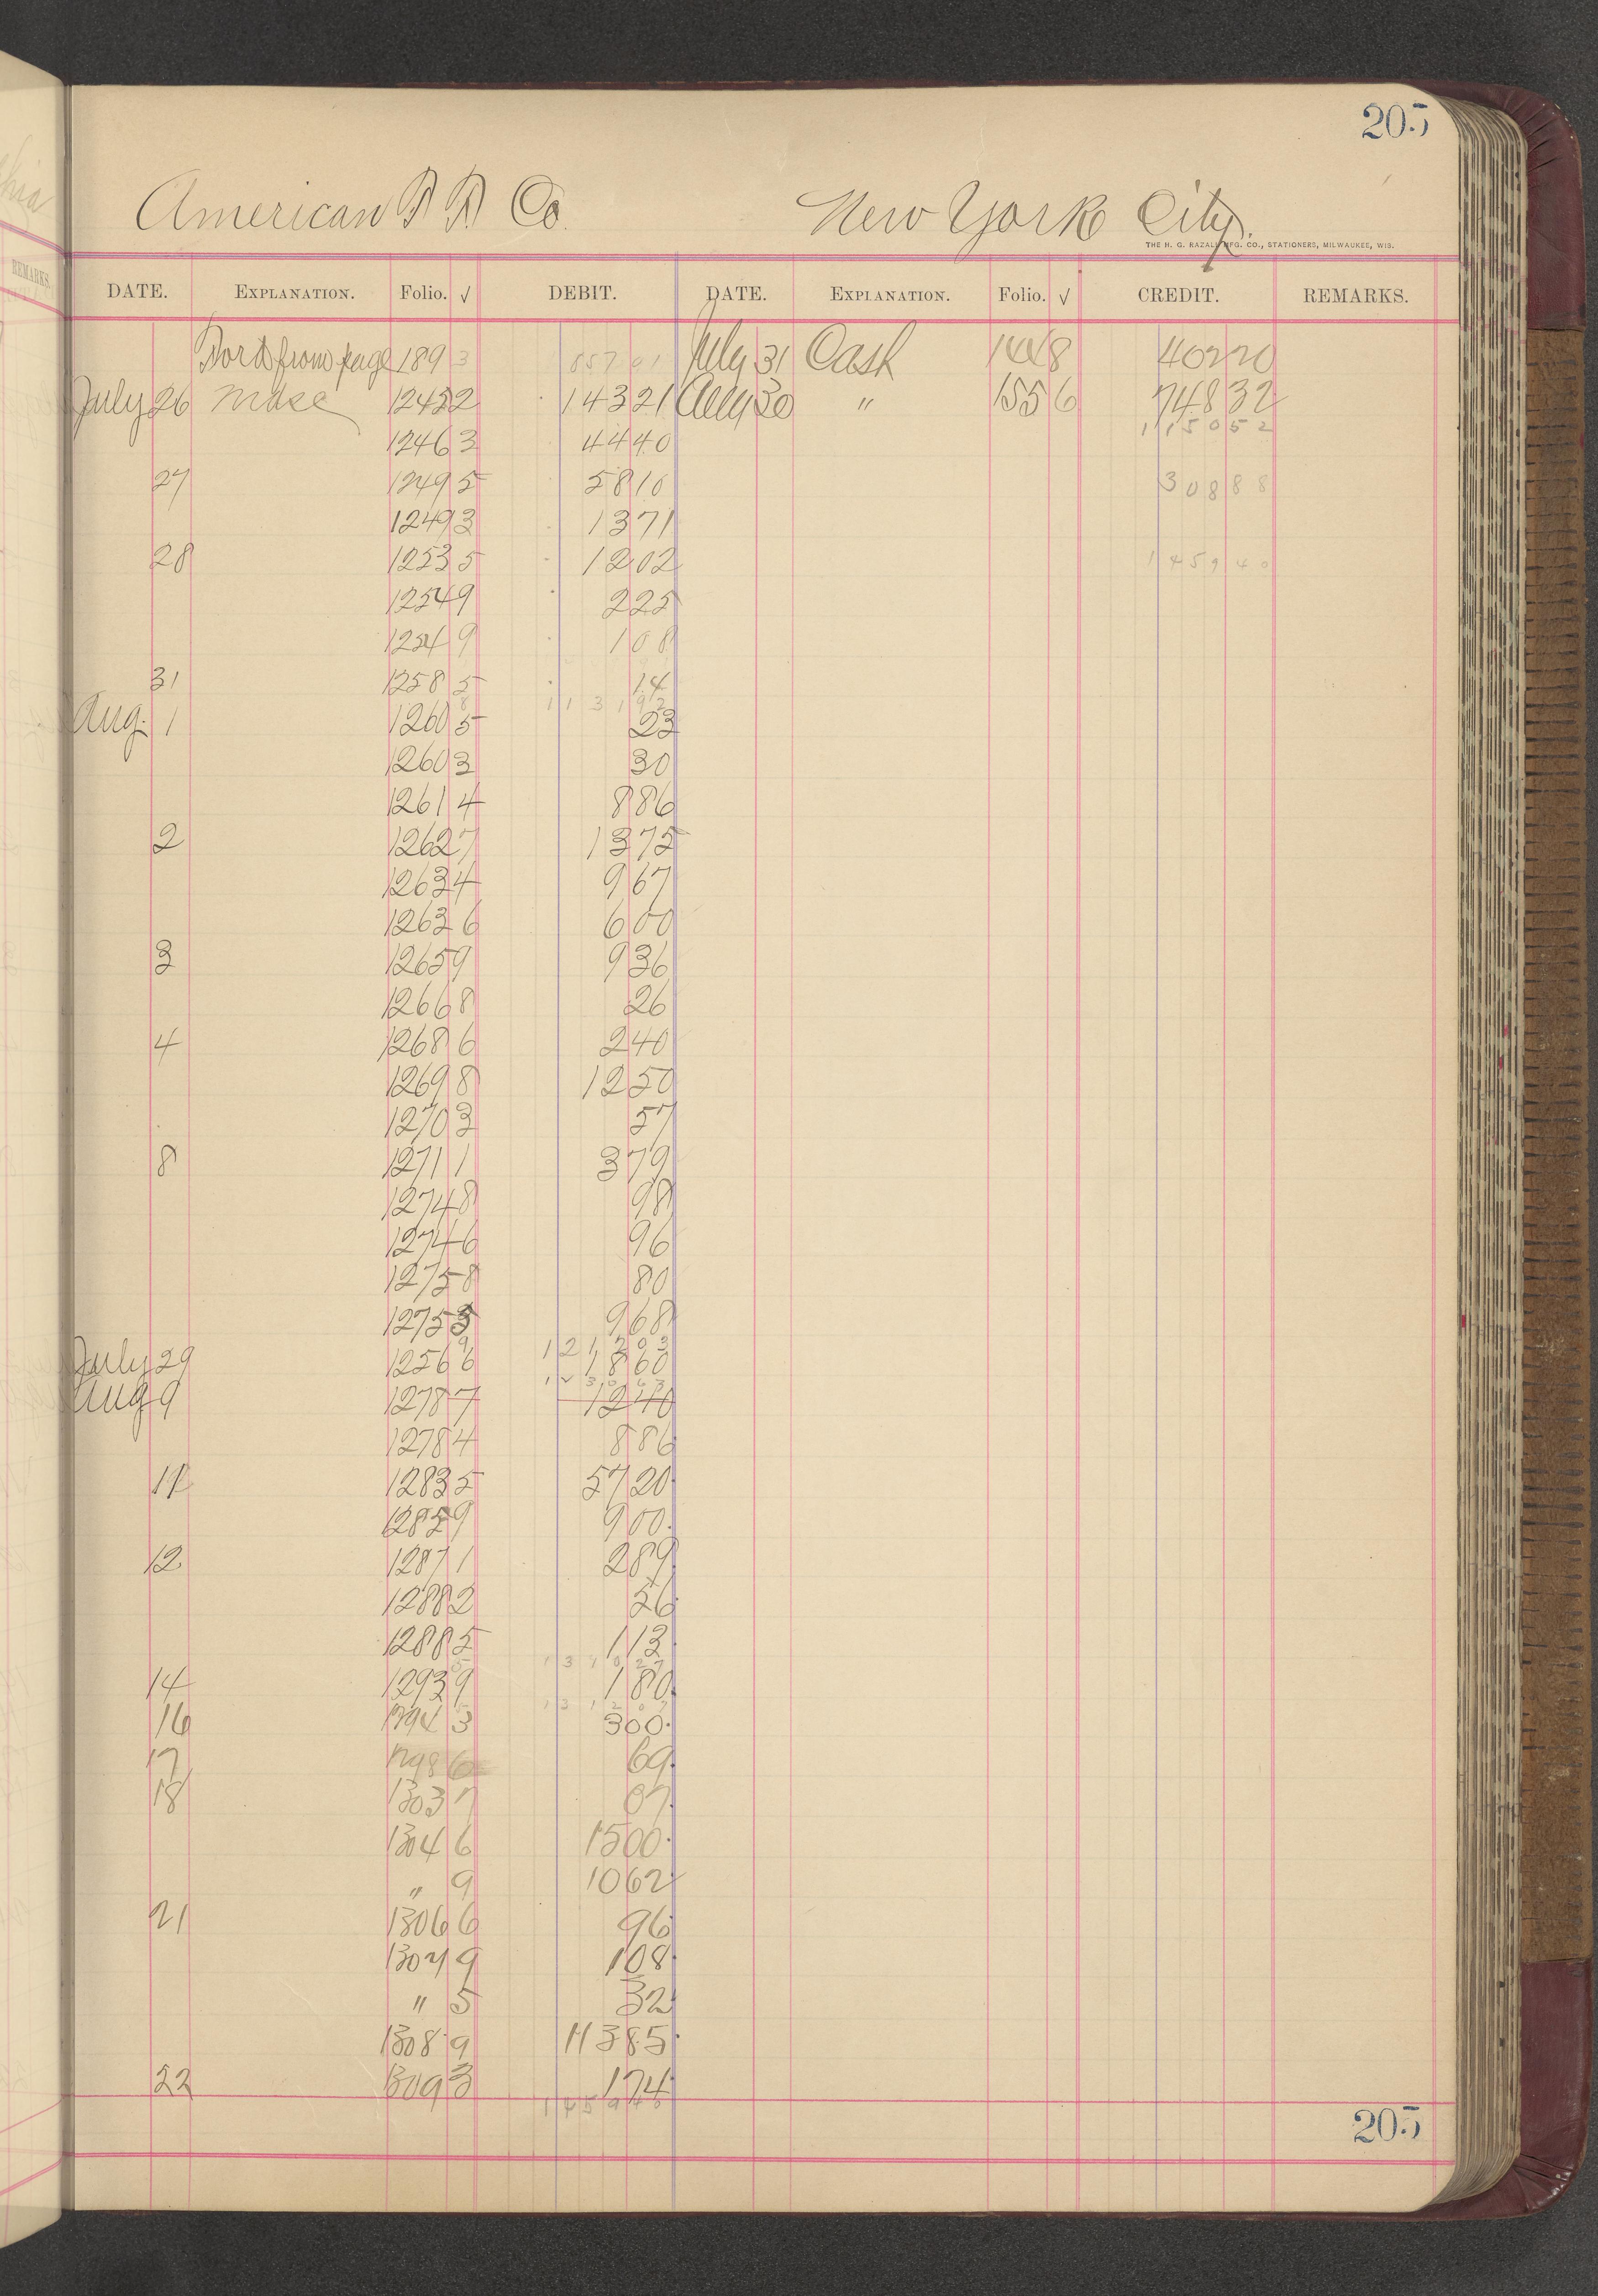 205
American R R Co. New York City.
THE H. G. RAZALL MFG. CO., STATIONERS, MILWAUKEE, WIS.
DATE. EXPLANATION. Folio. √ DEBIT. DATE. EXPLANATION. Folio. √ CREDIT. REMARKS.
from page 189 3 857 01 July 31 Cash 144 8 402 20
July 26 Mdse 1245 2 143 21 Aug 30 " 155 6 748 32
1150 52
1246 3 44 40
27 1249 5 58 10 308 88
1249 3 13 71
28 1253 5 12 02 1459 40
1254 9 2 25
1254 9 1 08
31 1258 5 14
1131 92
Aug. 1 1260 5 23
1260 3 30
1261 4 8 86
2 1262 7 13 75
1263 4 9 67
1263 6 6 00
3 1265 9 9 36
1266 8 26
4 1268 6 2 40
1269 8 12 50
1270 3 57
8 1271 1 3 79
1274 8 98
1274 6 96
1275 8 80
1275 3 9 68
1212 03
July 29 1256 6 18 60
1230 63
Aug 9 1278 7 12 40
1278 4 8 86
11 1283 5 57 20
1285 9 9 00
12 1287 1 2 89
1288 2 56
1288 5 1 13
1310 27
14 1293 9 1 80
1312 07
16 1294 3 3 00
17 1298 6 69
18 1303 7 07
1304 6 15 00
" 9 10 62
21 1306 6 96
1307 9 1 08
" 5 32
1308 9 113 85
22 1309 3 1 74
1459 40
205